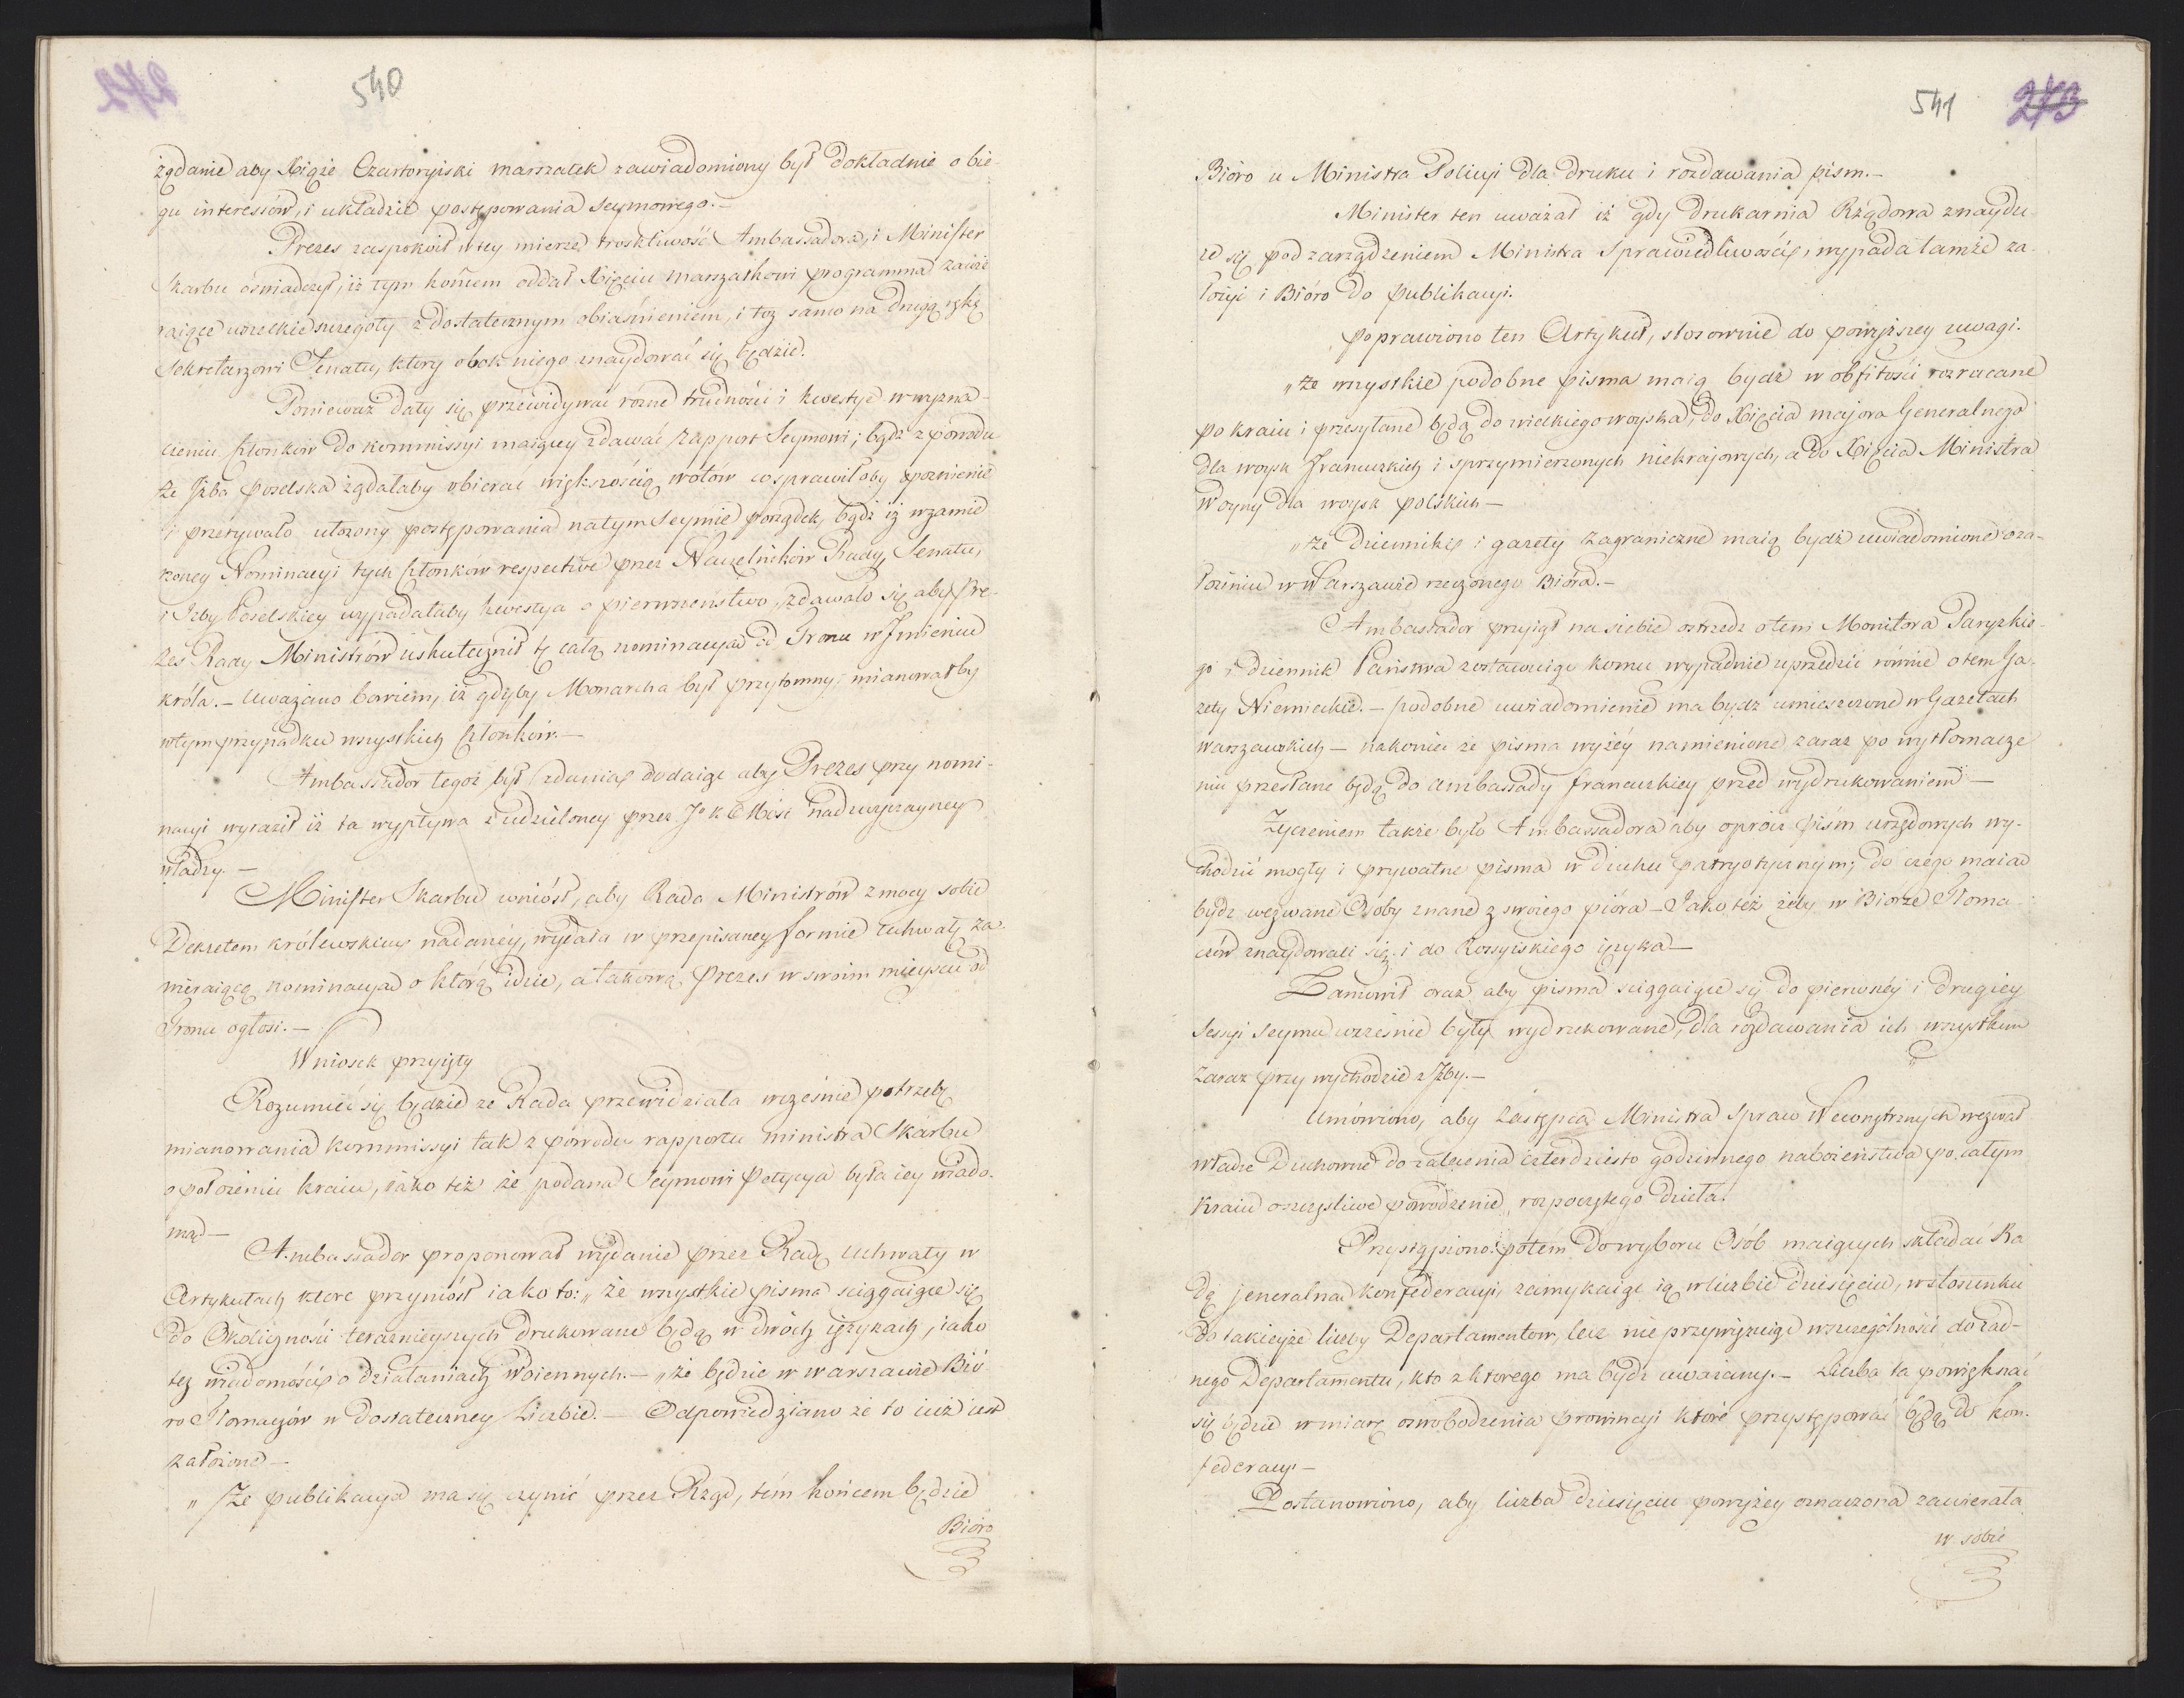 540
żądanie aby Xiąże Czartoryiski marszałek zawiadomiony był dokładnie o bie-
gu interessów, i układzie postępowania Seymowego.—
Prezes zaspokoił w tey mierze troskliwość Ambassadora, i Minister
Skarbu óświadczył, iż tym końcem oddał Xięciu marszałkowi programma zawie
raiące wszelkie szczegóły z dostatecznym obiaśnieniem, i toż samo na drugą rękę
Sekretarzowi Senatu, ktory obok niego znaydować się będzie.
Ponieważ dały się przewidywać różne trudności i kwestye w wyzna-
czeniu członków do kommissyi maiącey zdawać rapport Seymowi; bądź z powodu
że Jzba poselska żądałaby obierać większością wotów co sprawiłoby spoznienie
i przerywało ułożony postępowania na tym Seymie porządek, bądź iż wzamie
rzoney Nominacyi tych członków respective przez Naczelników Rady, Senatu,
i Izby Poselskiey wypadałaby kwestya o pierwszeństwo, zdawało się aby Pre-
zes Rady Ministrów uskutecznił tę całą nominacyą od Tronu w Jmieniu
króla.— Uważano bowiem, iż gdyby Monarcha był przytomny, mianowałby
w tym przypadku wszystkich członków.—
Ambassador tegoż był zdania, dodaiąc aby Prezes przy nomi-
nacyi wyraził iż ta wypływa z udzieloney przez Jo K Mości nadzwyczayney
władzy.—
Minister Skarbu wniósł, aby Rada Ministrów z mocy sobie
Dekretem królewskim nadanéy, wydała w przepisaney formie uchwałę za-
mieraiącą nominacyą o którą idzie, a takową Prezes w swoim mieyscu od
Tronu ogłosi.—
Wniosek przyięty
Rozumieć się będzie ze Rada przewidziała wcześnie potrzebę
mianowania kommissyi tak z powodu rapportu ministra Skarbu
o położeniu kraiu, iako też że podana Seymowi Petycya była iey wiado-
ma—
Ambassador proponował wydanie przez Radę Uchwały w
Artykułach ktore przyniósł iako to: „że wszystkie pisma sciągaiące się
do Okoliczności teraznieyszych drukowane będą w dwóch ięzykach, iako
też wiadomości o działaniach Woiennych.— „że będzie w warszawie Bió
ro Tłomaczów w dostateczney Liczbie.— Odpowiedziano że to iuż iest
założone—
„Ze publikacya ma się czynić przez Rząd, tém końcem będzie
Bióro
541 273
Bióro u Ministra Policyi dla druku i rozdawania pism.—
Minister ten uważał iż gdy drukarnia Rządowa znaydu-
ie się pod zarządzeniem Ministra Sprawiedliwości, wypada tamże za-
łożyć i Bióro do publikacyi.
poprawiono ten Artykuł, stosownie do powyższey uwagi.
„że wszystkie podobne pisma maią bydź w obfitości rozrzucane
po kraiu i przesyłane będą do wielkiego woyska, do Xięcia majora Generalnego
dla woysk Francuzkich i sprzymierzonych niekrajowych, a do Xięcia Ministra
Woyny dla woysk polskich—
„że dzienniki i gazety zagraniczne maią bydź uwiadomione o za-
łożeniu w Warszawie rzeczonego Bióra.—
Ambassador przyiął na siebie ostrzedz o tem Monitora Paryzkie-
go i dziennik Państwa zostawuiąc komu wypadnie uprzedzić równie o tem Ga-
zety Niemieckie.— podobne uwiadomienie ma bydź umieszczone w Gazetach
warszawskich— nakoniec że pisma wyżéy namienione zaraz po wytłomacze
niu przesłane będą do Ambassady francuzkiey przed wydrukowaniem—
Życzeniem także było Ambassadora aby oprócz pism urzędowych wy-
chodzić mogły i prywatne pisma w duchu patryotycznym; do czego maia
bydź wezwane Osoby znane z swoiego pióra— Jako też żeby w Biorze Tłoma-
czów znaydowali się i do Rossyiskiego ięzyka—
Zamówił oraz aby pisma sciągaiące się do pierwszéy i drugiey
Sessyi Seymu wcześnie były wydrukowane, dla rozdawania ich wszystkim
zaraz przy wychodzie z Jzby.—
Umówiono, aby zastępca Ministra Spraw Wewnętrznych wezwał
władze Duchowne do zalecenia czterdziesto godzinnego nabożeństwa po całym
Kraiu o szczęśliwe powodzenie rozpoczętego dzieła.
Przystąpiono potém do wyboru Osób maiących składać Ra
dę jeneralną konfederacyi, zamykaiąc ią w liczbie dziesięciu, w stosunku
do takieyże liczby Departamentow, lecz nie przywięzuiąc w szczególności do żad-
nego Departamentu, kto z ktorego ma bydź uważany.— Liczba ta powiększać
się będzie w miarę oswobodzenia prowincyi ktore przystępować będą do kon-
federacyi—
Postanowiono, aby liczba dziesięciu powyżey oznaczona zawierała
w sobie